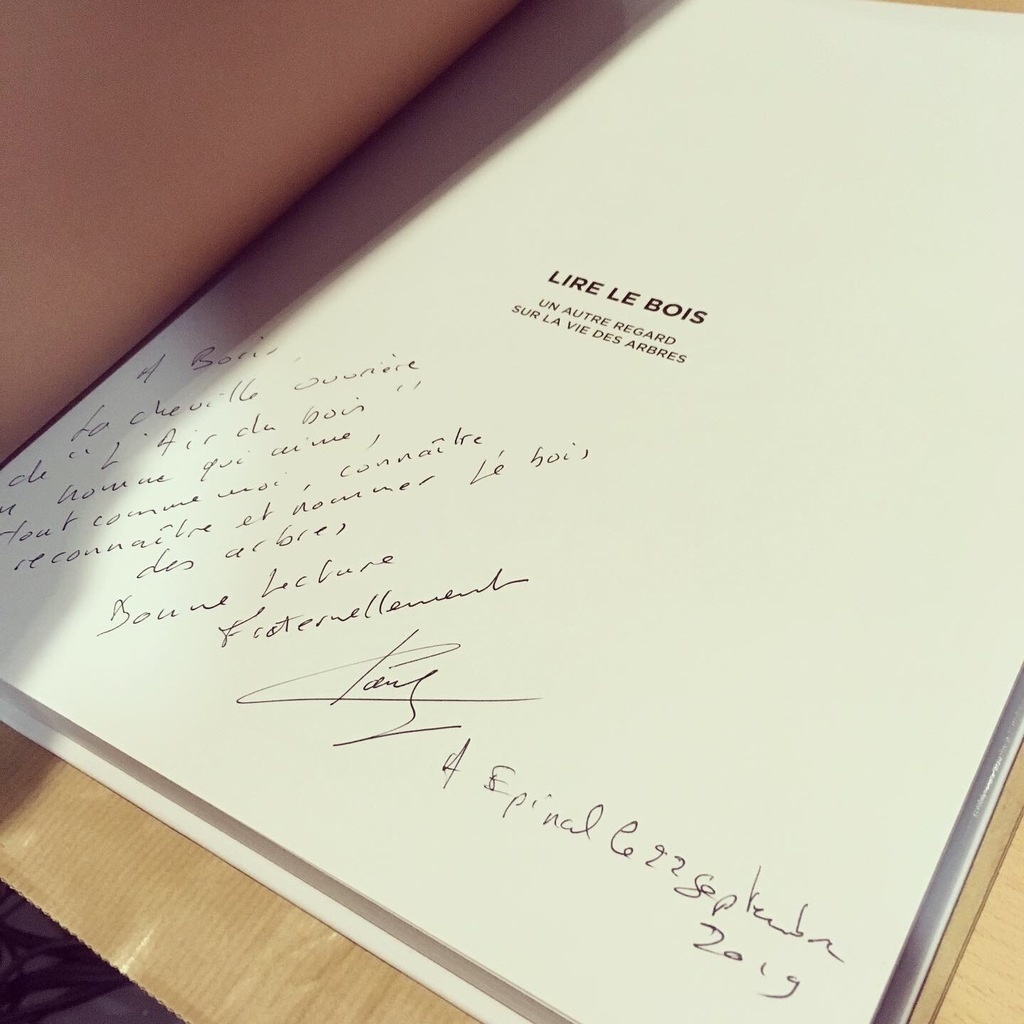 LIRE LE BOIS
UN AUTRE REGARD
SUR LA VIE DES ARBRES
A Boris,
La cheville ouvrière
de "L'Air du bois"
homme qui aime,
tout comme moi, connaître,
reconnaître et nommer le bois
des arbres
Bonne Lecture
Fraternellement
A Epinal le 22 septembre
2019